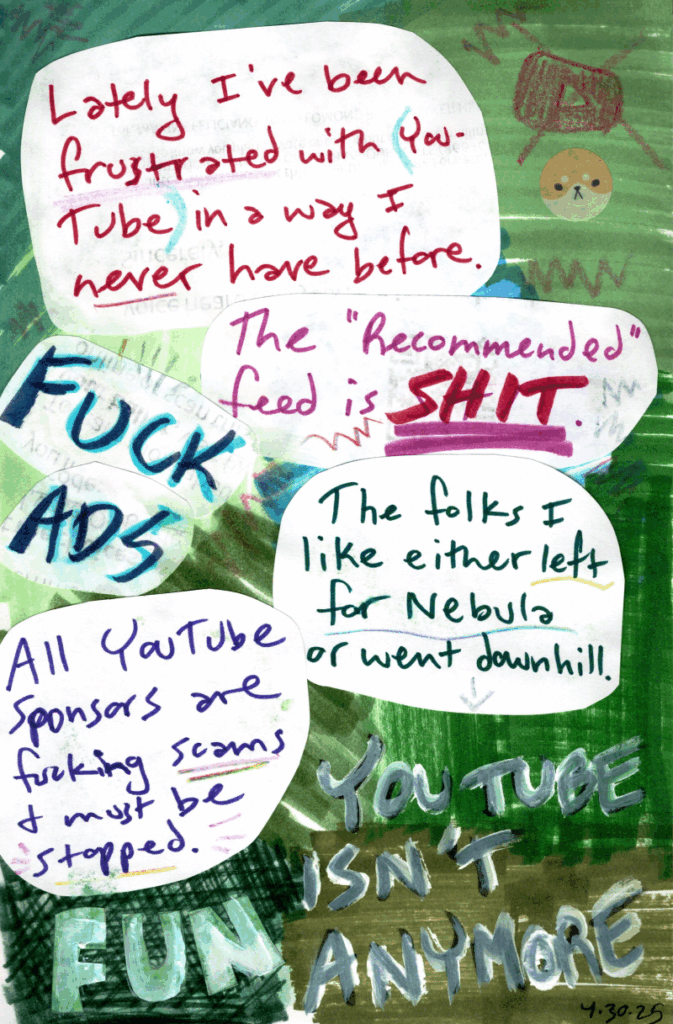 Lately I've been
frustrated with (You-
Tube) in a way I
never have before.
The "Recommended"
feed is SHIT.
FUCK
ADS
The folks I
like either left
for Nebula
or went downhill.
All YouTube
sponsors are
fucking scams
& must be
stopped.
YOUTUBE
ISN'T
FUN
ANYMORE
4.30.25